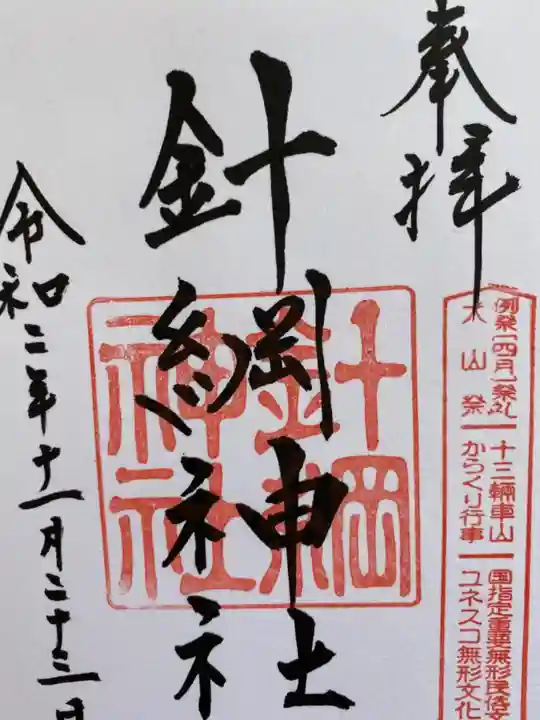 奉拝
例祭(四月)祭礼
犬山祭
十三輛車山
からくり行事
国指定重要無形民俗文
ユネスコ無形文化
針綱神社
針綱神社
令和二年十一月二十三日